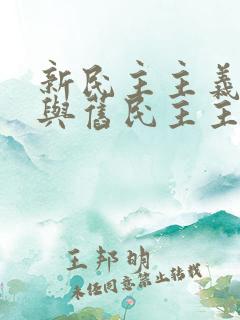 新民主主義
與舊民主主
王邦明
未经同意禁止转载